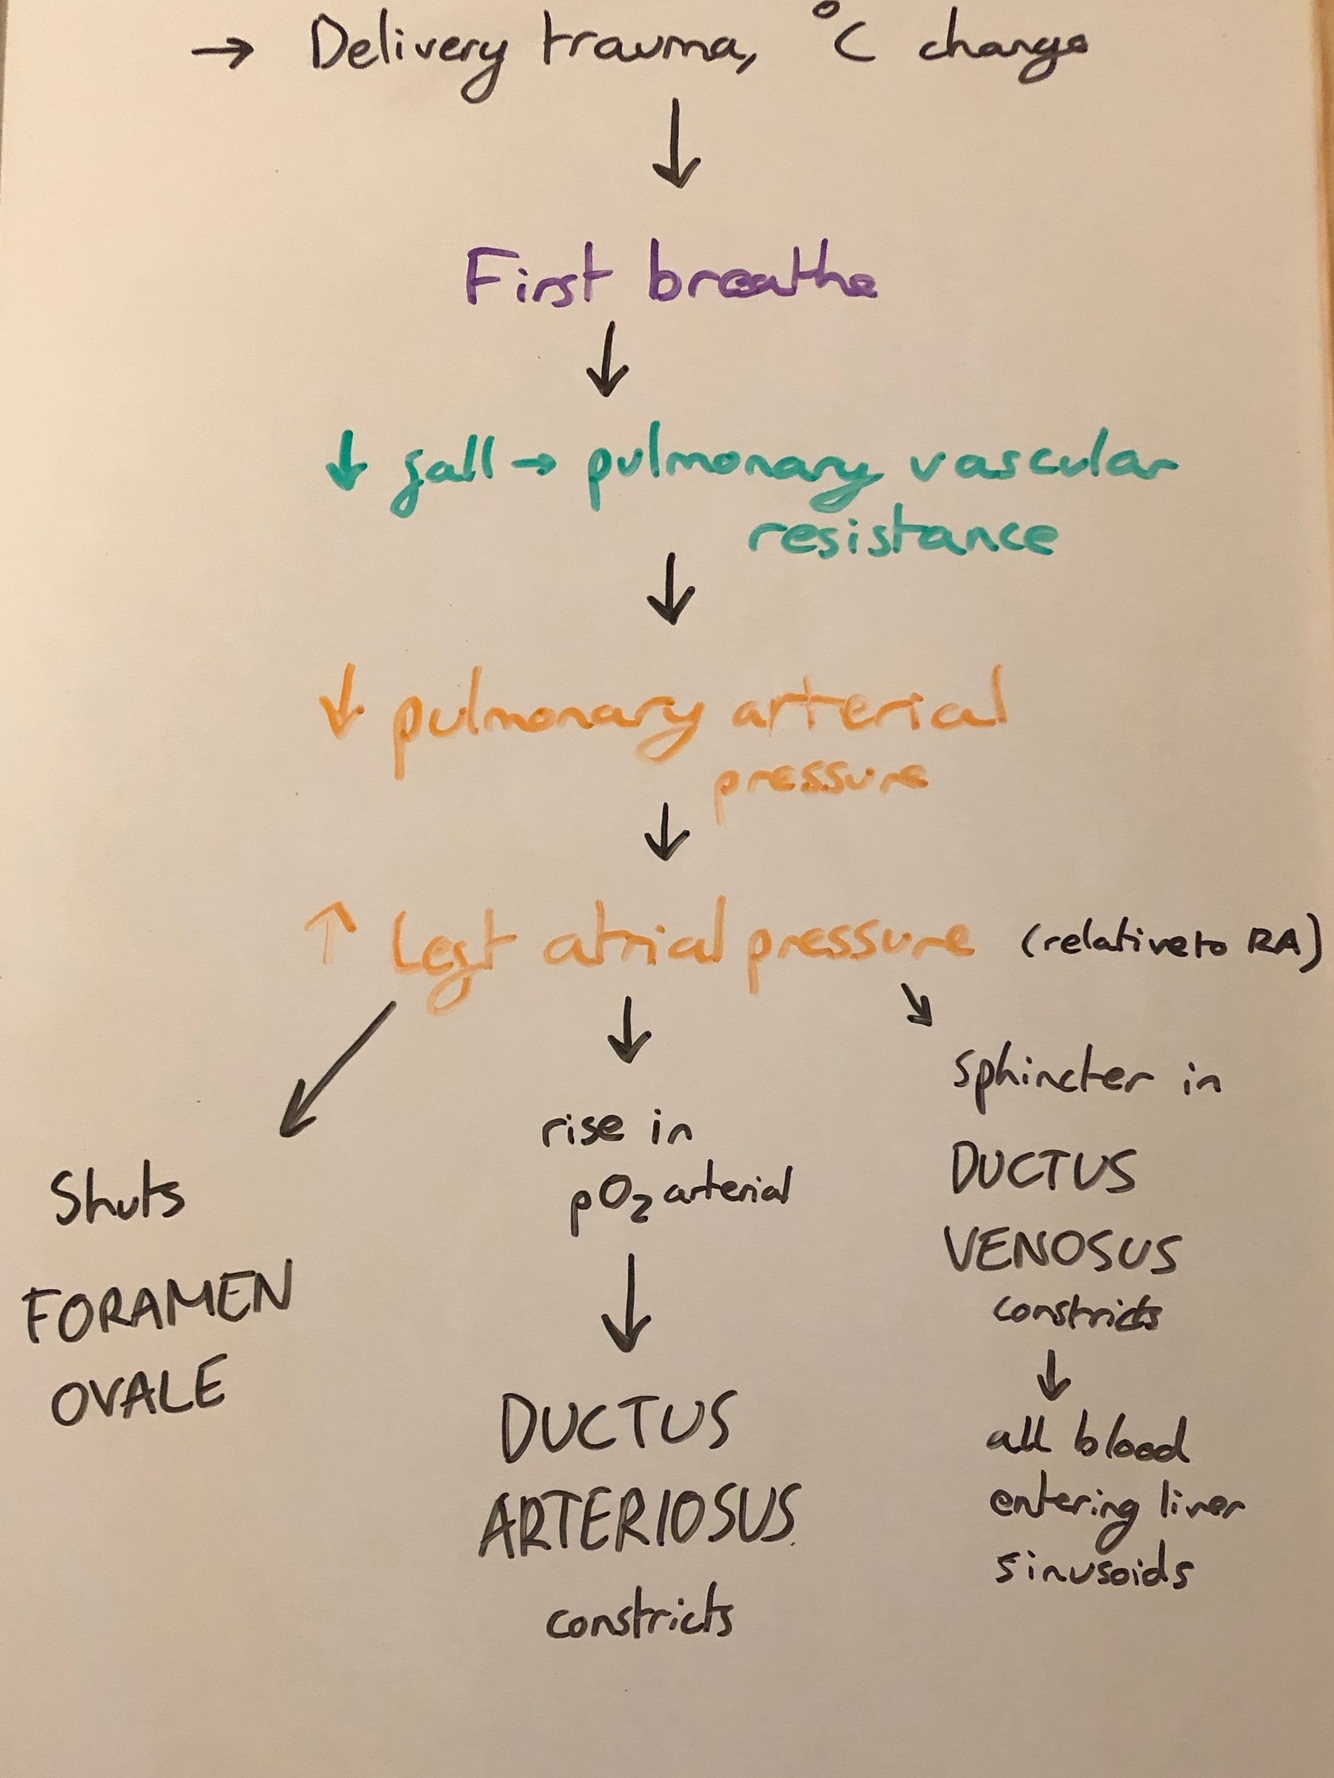 → Delivery trauma, °C change
↓
First breathe
↓
↓ fall → pulmonary vascular
resistance
↓
↓ pulmonary arterial
pressure
↓
↑ Left atrial pressure (relative to RA)
↙ ↓ ↘
Shuts
FORAMEN
OVALE
rise in
pO₂ arterial
↓
DUCTUS
ARTERIOSUS
constricts
sphincter in
DUCTUS
VENOSUS
constricts
↓
all blood
entering liver
sinusoids